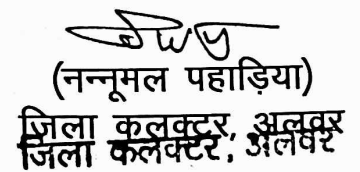 (नन्नूमल पहाड़िया)
जिला कलक्टर, अलवर
जिला कलेक्टर, अलवर